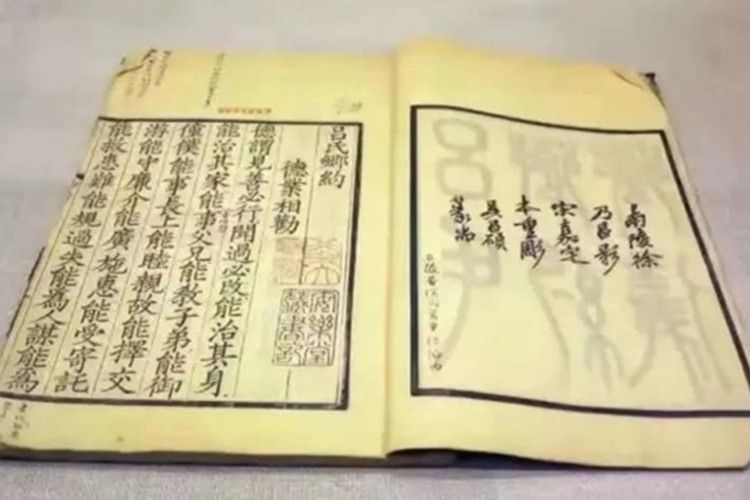 南陵徐
乃昌影
宋嘉定
本重彫
吳昌碩
篆耑
呂氏鄉約
德業相勸
德謂見善必行聞過必改能治其身
能治其家能事父兄能教子弟能御
僮僕能事長上能睦親故能擇交
游能守廉介能廣施惠能受寄託
能救患難能規過失能為人謀能為